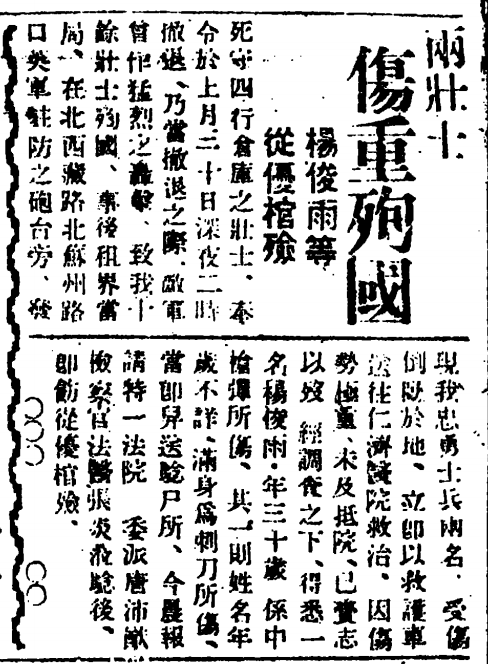 兩壯士
傷重殉國
楊俊雨等
從優棺殮
死守四行倉庫之壯士、奉
令於上月三十日深夜二時
撤退、乃當撤退之際、敵軍
曾作猛烈之轟擊、致我十
餘壯士殉國、事後租界當
局、在北西藏路北蘇州路
口英軍駐防之砲台旁、發
現我忠勇士兵兩名、受傷
倒臥於地、立卽以救護車
送往仁濟醫院救治、因傷
勢極重、未及抵院、已賫志
以歿、經調查之下、得悉一
名楊俊雨·年三十歲、係中
槍彈所傷、其一則姓名年
歲不詳、滿身爲刺刀所傷、
當卽舁送驗尸所、今晨報
請特一法院、委派唐沛猷
檢察官法醫張炎涖驗後、
卽飭從優棺殮、